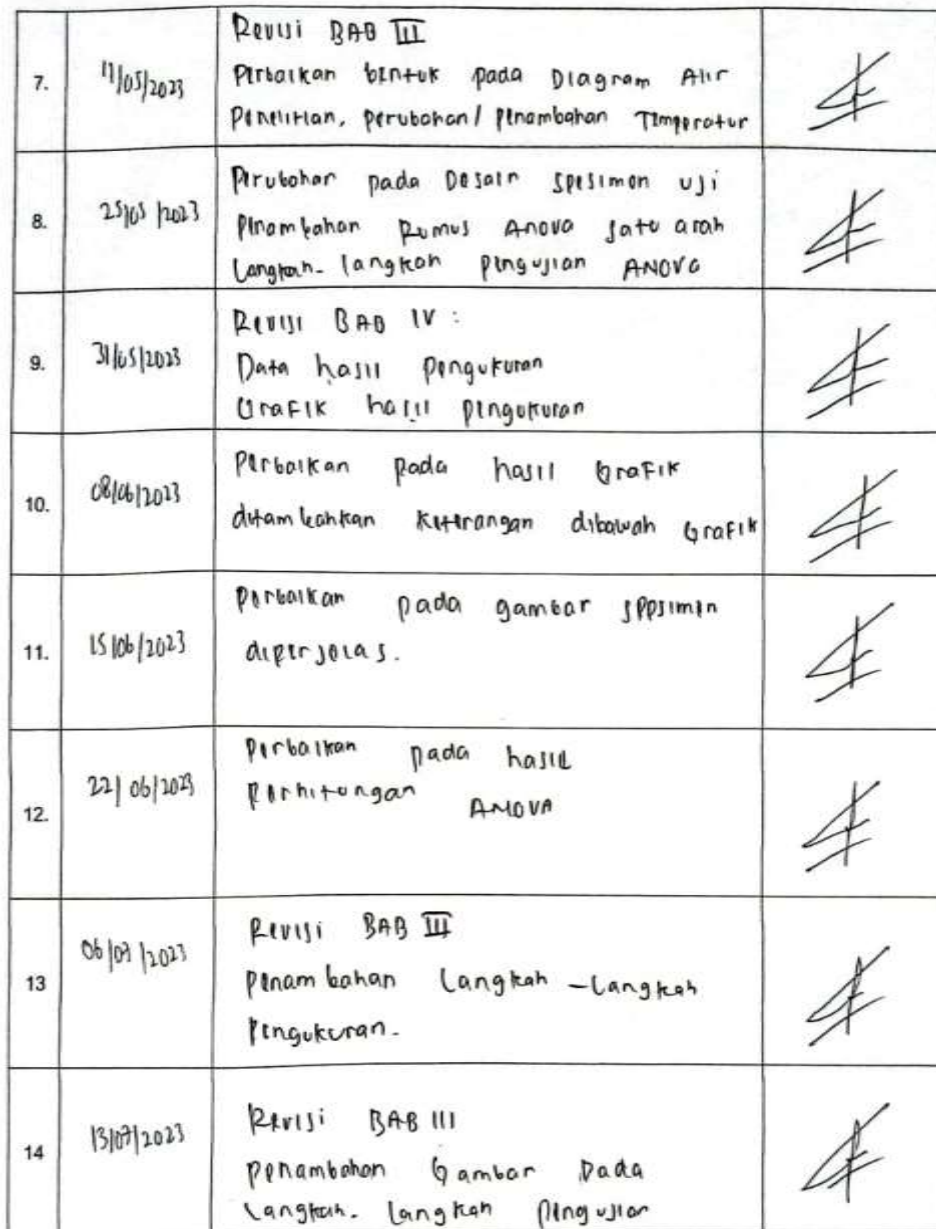 7.
17/05/2023
Revisi BAB III
Perbaikan bentuk pada Diagram Alir
Penelitian, perubahan/ penambahan Temperatur
8.
25/05/2023
Perubahan pada Desain spesimen uji
Penambahan Rumus Anova satu arah
Langkah-langkah pengujian ANOVA
9.
31/05/2023
Revisi BAB IV :
Data hasil pengukuran
Grafik hasil pengukuran
10.
08/06/2023
Perbaikan pada hasil Grafik
ditambahkan keterangan dibawah Grafik
11.
15/06/2023
Perbaikan pada gambar spesimen
diperjelas.
12.
22/06/2023
Perbaikan pada hasil
Perhitungan ANOVA
13
06/07/2023
Revisi BAB III
Penambahan Langkah-Langkah
Pengukuran.
14
13/07/2023
Revisi BAB III
Penambahan Gambar Pada
Langkah-Langkah Pengujian